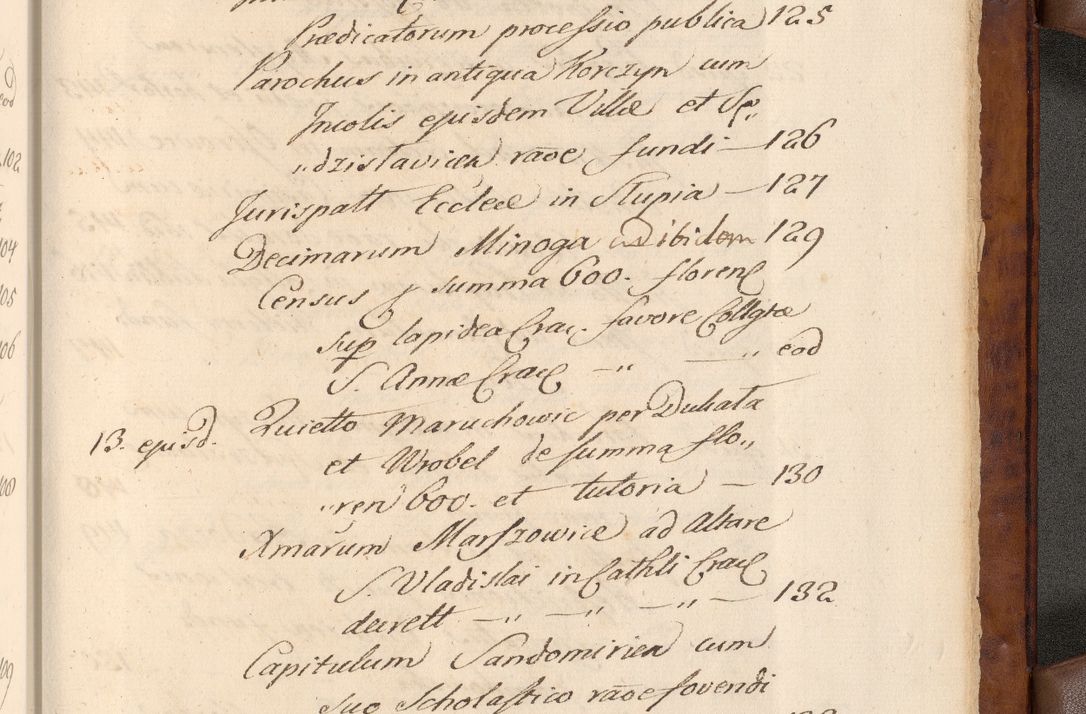 Prædicatorum processio publica 125
Parochus in antiqua Korczyn cum
Incolis ejusdem Villæ et Sę„
„dzistavien raõe fundi — 126
Jurispatt Eccleæ in Slupia — 127
Decimarum Minoga ad ibidem 129
Census f summa 600. floren
sup lapidea Crac. favore Collgtæ
S. Annæ Crac — „ — „ eod
13. ejusd. Quietto Maruchowic per Dukata
et Wrobel de summa flo„
„ren 600. et tutoria — 130
Xmarum Marszowice ad Altare
S. Vladislai in Cathli Crac
decrett — „ — „ — „ — 132
Capitulum Sandomirien cum
suo Scholastico raõe fovendi
102
104
105
106
109